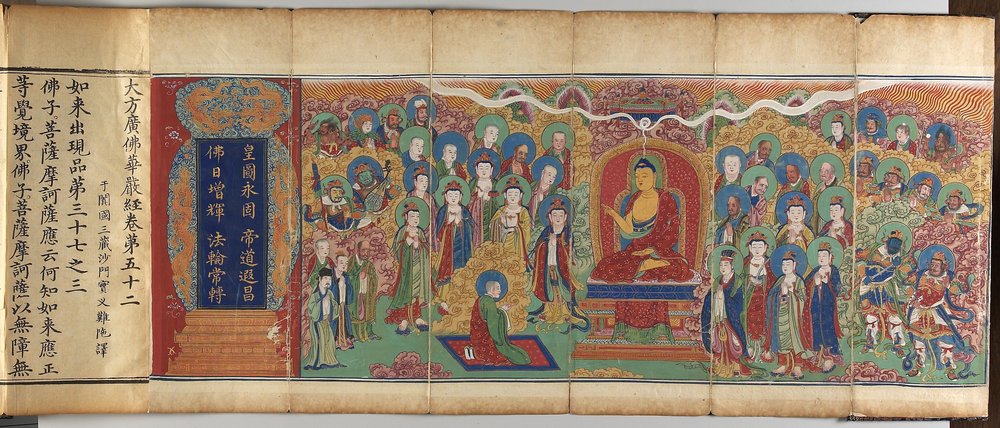 皇圖永固 帝道遐昌
佛日增輝 法輪常轉
大方廣佛華嚴經卷第五十二
于闐國三藏沙門實叉難陁譯
如来出現品第三十七之三
佛子菩薩摩訶薩應云何知如来應正
等覺境界佛子菩薩摩訶薩以無障無